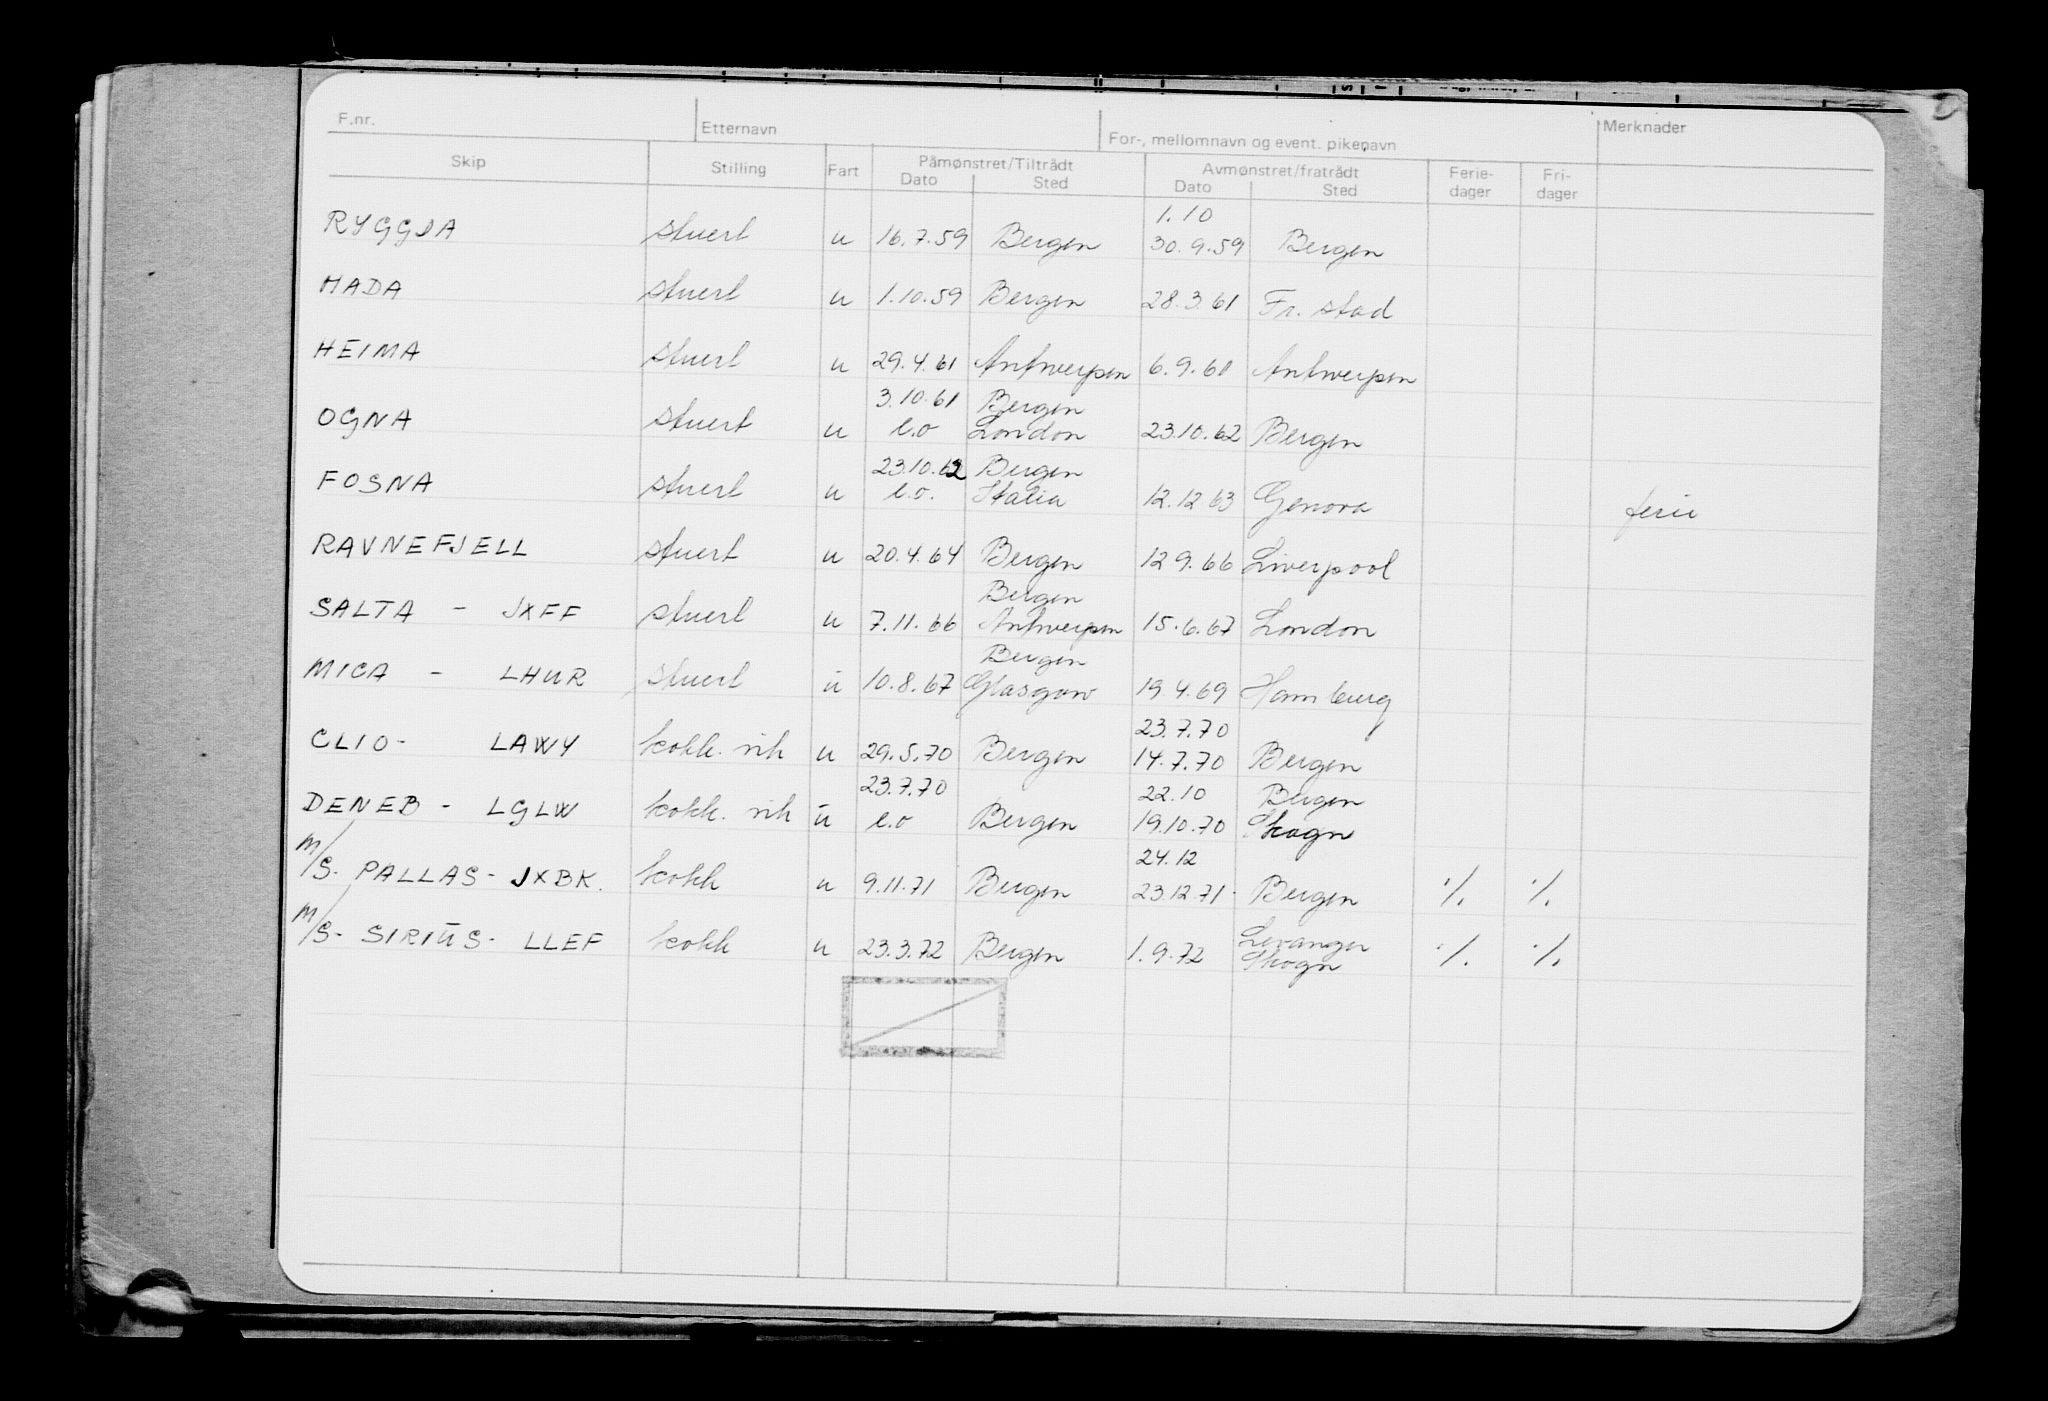 F.nr. Etternavn For-, mellomnavn og event. pikenavn Merknader
Skip Stilling Fart Påmønstret/Tiltrådt Avmønstret/fratrådt Ferie-dager Fri-dager
Dato Sted Dato Sted
1.10
RYGGJA stuert u 16.7.59 Bergen 30.9.59 Bergen
HADA stuert u 1.10.59 Bergen 28.3.61 Fr. stad
HEIMA stuert u 29.4.61 Antwerpen 6.9.61 Antwerpen
3.10.61 Bergen
OGNA stuert u e.o London 23.10.62 Bergen
23.10.62 Bergen
FOSNA stuert u e.o. Italia 12.12.63 Genova ferie
RAVNEFJELL stuert u 20.4.64 Bergen 12 9.66 Liverpool
Bergen
SALTA - JXFF stuert u 7.11.66 Antwerpen 15.6.67 London
Bergen
MICA - LHUR stuert u 10.8.67 Glasgow 19.4.69 Hamburg
23.7.70
CLIO - LAWY kokk. vik u 29.5.70 Bergen 14.7.70 Bergen
23.7.70 22.10 Bergen
DENEB - LGLW kokk. vik u e.o Bergen 19.10.70 Skogn
24.12
M/S. PALLAS - JXBK. kokk u 9.11.71 Bergen 23.12.71. Bergen ./. ./.
Levanger
M/S- SIRIUS - LLEF kokk u 23.3.72 Bergen 1.9.72 Skogn ./. ./.